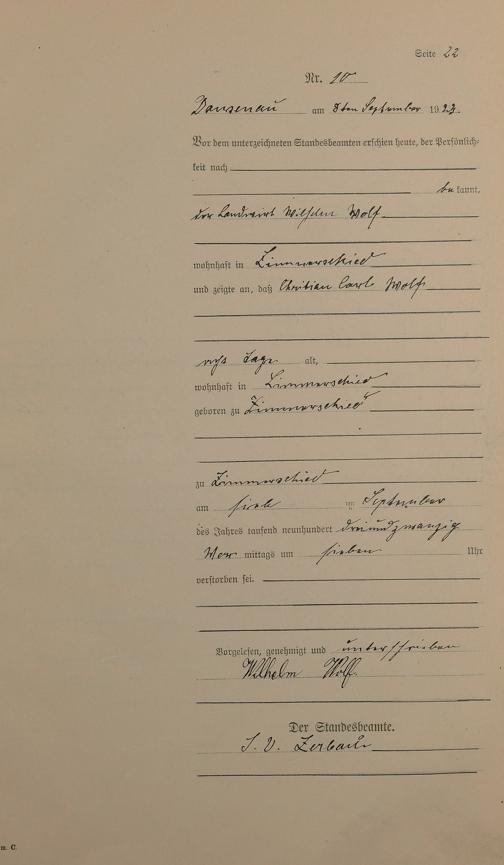 Seite 22
Nr. 10
Dausenau am 8ten September 1923.
Vor dem unterzeichneten Standesbeamten erschien heute, der Persönlich-
keit nach
be kannt,
der Landwirt Wilhelm Wolf
wohnhaft in Zimmerschied
und zeigte an, daß Christian Carl Wolf
Tage alt,
wohnhaft in Zimmerschied
geboren zu Zimmerschied
zu Zimmerschied
am September
des Jahres tausend neunhundert dreiundzwanzig
Vor mittags um sieben Uhr
verstorben sei.
Vorgelesen, genehmigt und unterschrieben
Wilhelm Wolf
Der Standesbeamte.
I. V. Zerbach
m. C.